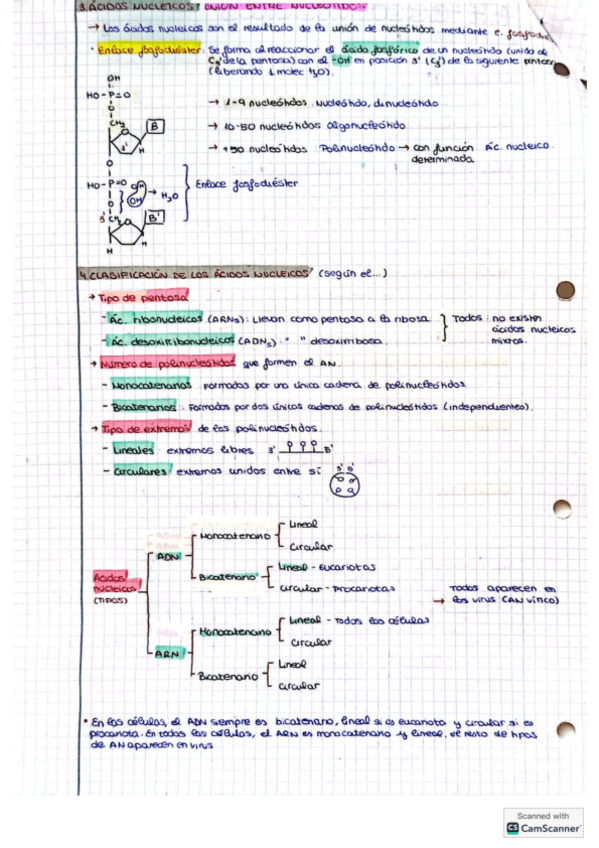 3. ÁCIDOS NUCLEICOS: UNIÓN ENTRE NUCLEÓTIDOS
→ Los ácidos nucleicos son el resultado de la unión de nucleótidos mediante e. fosfodié.
· Enlace fosfodiéster: Se forma al reaccionar el ácido fosfórico de un nucleótido (unido de
C5' de la pentosa) con el -OH en posición 3' (C3') de la siguiente pentosa
(liberando 1 molec H2O).
OH
HO-P=O
O
CH2
B
3'
H
O
HO-P=O
OH
OH
→ H2O
O
5' CH2
B'
H
H
→ 1-9 nucleótidos: Nucleótido, dinucleótido
→ 10-50 nucleótidos: Oligonucleótido
→ +50 nucleótidos: Polinucleótido → con función Ác. nucleico
determinada
Enlace fosfodiéster
4. CLASIFICACIÓN DE LOS ÁCIDOS NUCLEICOS (según el...)
→ Tipo de pentosa
- Ác. ribonucleicos (ARNs): Llevan como pentosa a la ribosa
- Ác. desoxirribonucleicos (ADNs): " " desoxirribosa
Todos: no existen
ácidos nucleicos
mixtos.
→ Número de polinucleótidos que formen el AN.
- Monocatenarios: formados por una única cadena de polinucleótidos.
- Bicatenarios: Formados por dos únicos cadenas de polinucleótidos (independientes).
→ Tipo de extremos de los polinucleótidos.
- Lineales: extremos libres 3' 5'
- Circulares: extremos unidos entre sí 3' 5'
Ácidos
nucleicos
(TIPOS)
ADN
Monocatenario
Lineal
Circular
Bicatenario
Lineal - Eucariotas
Circular - Procariotas
ARN
Monocatenario
Lineal - Todas las células
Circular
Bicatenario
Lineal
Circular
Todos aparecen en
→ los virus (AN único)
· En las células, el ADN siempre es bicatenario, lineal si es eucariota y circular si es
procariota. En todas las células, el ARN es monocatenario y lineal, el resto de tipos
de AN aparecen en virus
Scanned with
CS CamScanner